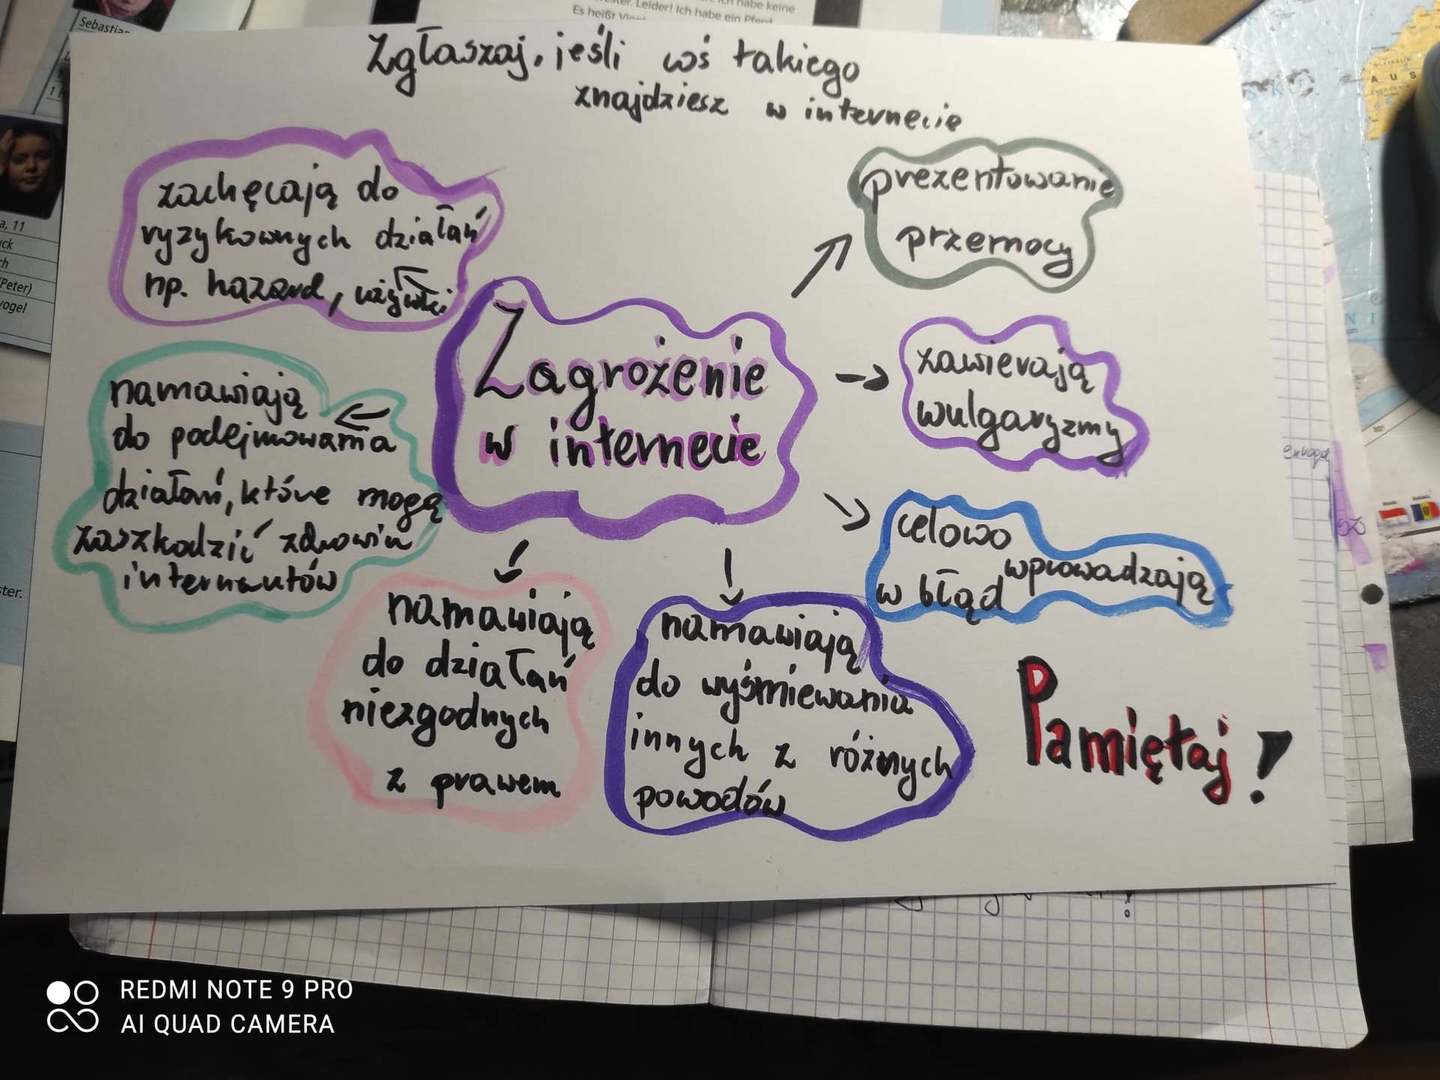 Zgłaszaj, jeśli coś takiego
znajdziesz w internecie
zachęcają do
ryzykownych działań
np. hazard, używki
prezentowanie
przemocy
Zagrożenie
w internecie
zawierają
wulgaryzmy
namawiają
do podejmowania
działań, które mogą
zaszkodzić zdrowiu
internautów
celowo
wprowadzają
w błąd
namawiają
do działań
niezgodnych
z prawem
namawiają
do wyśmiewania
innych z różnych
powodów
Pamiętaj!
Sebastian
a, 11
(Peter)
vogel
Leider! Ich habe keine
Es heißt
Ich habe ein Pferd
REDMI NOTE 9 PRO
AI QUAD CAMERA